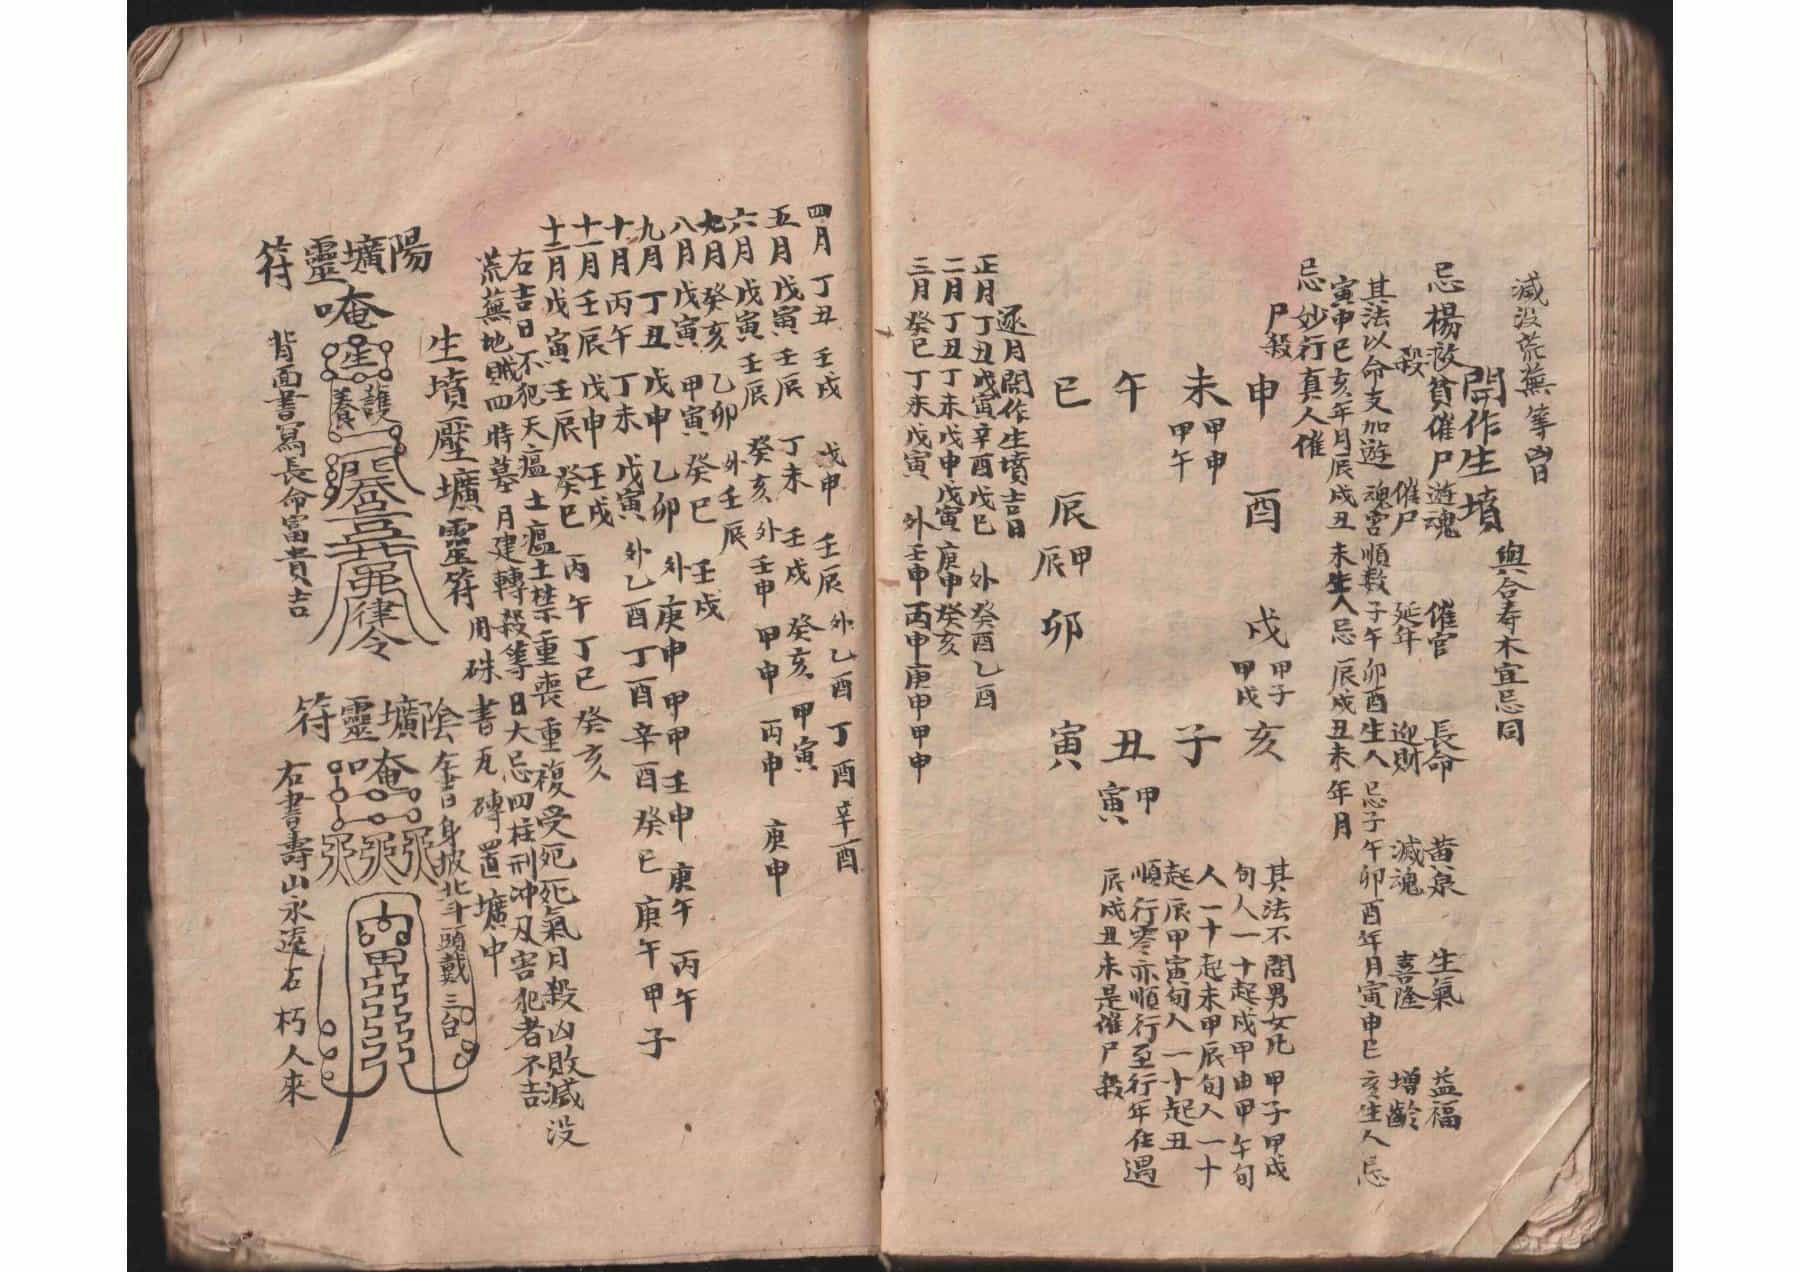 滅没荒蕪等凶日
開作生墳 與合寿木宜忌同
忌楊救貧催尸殺 遊魂 催官 長命 黄泉 生氣 益福
催尸 延年 迎財 滅魂 喜隆 增齡
其法以命支加遊魂宮順数子午卯酉生人忌子午卯酉年月寅申巳亥生人忌
寅申巳亥年月辰戌丑未生人忌辰戌丑未年月
忌妙行真人催
尸殺
申 未 甲申 甲午 午 巳
酉 辰 甲辰
戌 甲子 甲戌 卯
亥 子 丑 甲寅 寅
其法不問男女凡甲子甲戌
旬人一十起戌甲申甲午旬
人一十起未甲辰旬人一十
起辰甲寅旬人一十起丑
順行零亦順行至行年住遇
辰戌丑未是催尸殺
逐月開作生墳吉日
正月丁丑戊寅辛酉戊巳 外癸酉乙酉
二月丁丑丁未戊申戊寅庚申癸亥
三月癸巳丁未戊寅 外壬申丙申庚申甲申
四月丁丑 壬戌 戊申 壬辰外乙酉丁酉辛酉
五月戊寅 壬辰 丁未 壬戌 癸亥 甲寅
六月戊寅 壬辰 癸亥 外壬申 甲申 丙申 庚申
七月癸亥 乙卯 外壬辰
八月戊寅 甲寅 癸巳 壬戌
九月丁丑 戊申 乙卯 外庚申甲申壬申 庚午 丙午
十月丙午 丁未 戊寅 外乙酉丁酉辛酉癸巳庚午甲子
十一月壬辰 戊申 壬戌
十二月戊寅 壬辰 癸巳 丙午 丁巳 癸亥
右吉日不犯天瘟土瘟土禁重喪重複受死死氣日殺凶敗滅没
荒蕪地賊四時墓月建轉殺等日大忌四柱刑冲刃害犯者不吉
生墳壓壙靈符 用硃書瓦磚置壙中
陽壙靈符
唵
生
養護
律令
背面書寫長命富貴吉
陰壙靈符
唵
左書日身披北斗頭戴三台
右書壽山永遠石朽人來